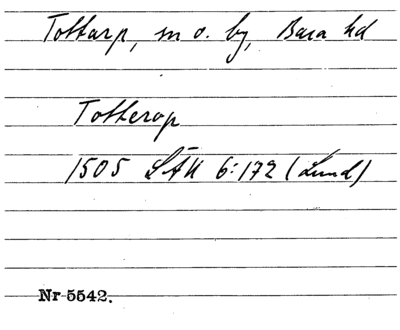 Tottarp, sn o. by, Bara hd
Totterop
1505 LÄU 6:172 (Lund)
Nr 5542.